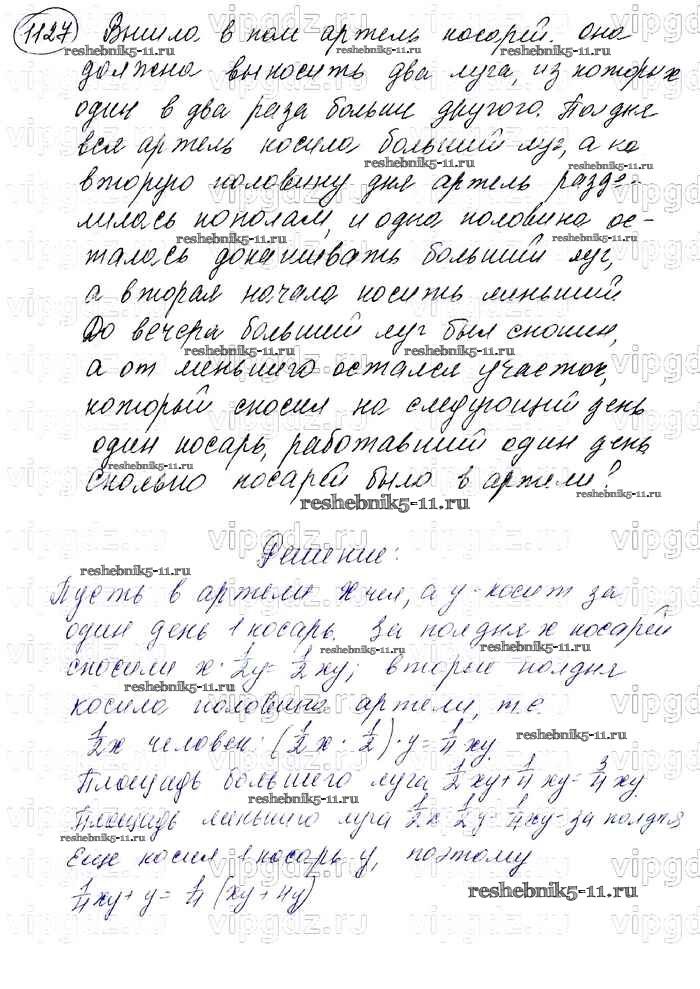 1127 Вышла в поле артель косарей. она
должна выкосить два луга, из которых
один в два раза больше другого. Полдня
вся артель косила больший луг, а на
вторую половину дня артель разде-
лилась пополам, и одна половина ос-
талась докашивать больший луг,
а вторая начала косить меньший
До вечера больший луг был скошен,
а от меньшего остался участок,
который скосил на следующий день
один косарь, работавший один день
сколько косарей было в артели?
Решение:
Пусть в артели х чел, а у - косит за
один день 1 косарь. За полдня х косарей
скосили х · 1/2 у = 1/2 ху; вторые полдня
косила половина артели, т.е.
1/2 х человек: (1/2 х · 1/2) · у = 1/4 ху
Площадь большего луга 1/2 ху + 1/4 ху = 3/4 ху.
Площадь меньшего луга 1/2 х · 1/2 у = 1/4 ху - за полдня
Еще косил 1 косарь у, поэтому
1/4 ху + у = 1/4 (ху + 4у)
reshebnik5-11.ru
vipgdz.ru